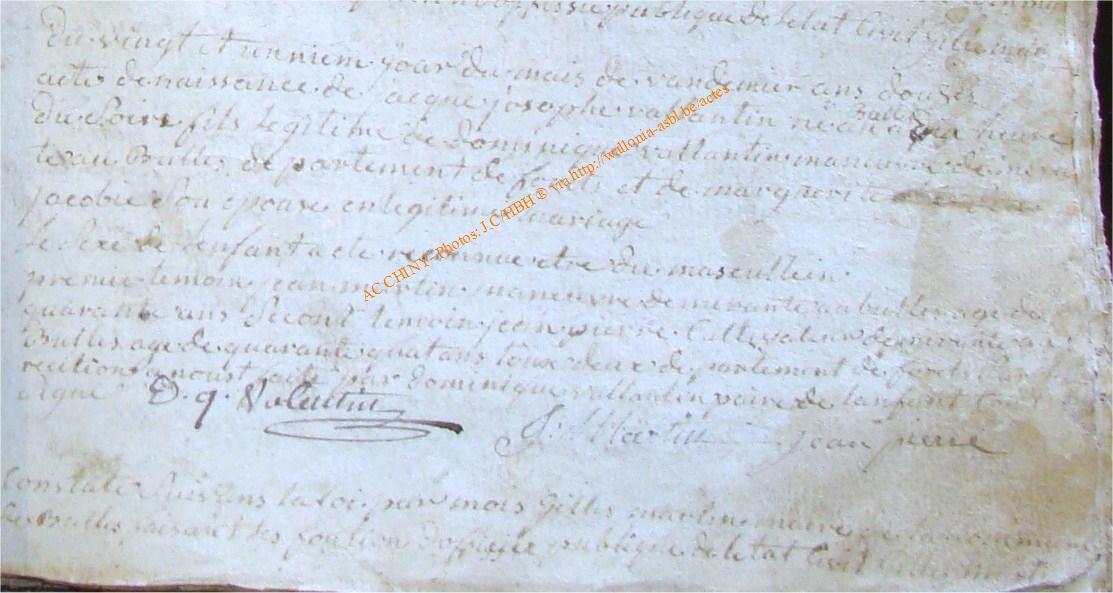 publique de l'etat Civil gille mar
Du vingt et unniem jour du mois de vandemier ans douse
acte de naissance de jacque josephe vallantin né
du Soire fils legitime de Dominique vallantin maneuvre
Bulles departement de forêts et de margueritte
jacobie Son epouse en legitime mariage
le sexe de l'enfant a ete reconnue etre du mascullein
premier temoin jean martin maneuvre demeurante au bulles age de
quarante ans Second temoin jean pierre Cultivateur
Bulles age de quarante quat ans toux deux departement de forets
a nous faite par Dominique vallantin paire de lanfant
Signé D. q. Valentin
J. Martin jean pierre
Constaté Suivans la loi par mois gilles martin maire de la commune
les Bulles faisant les fontion d'officier publique de letat Civil gilles mart
AC CHINY - Photos: J.C HBH ® via http://wallonia-asbl.be/actes